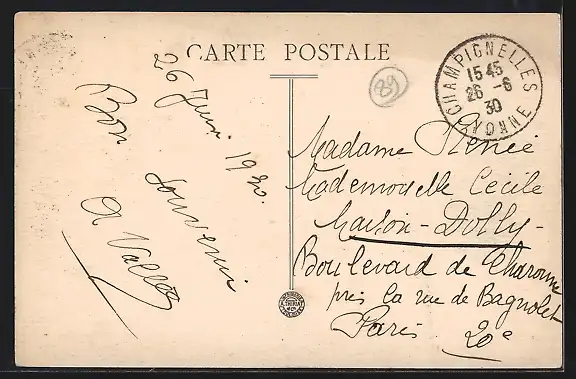 CARTE POSTALE
26 Juin 1930.
Bon
souvenir
A Vallée
89
CHAMPIGNELLES
15 45
26 -6
30
YONNE
Madame Renée
Mademoiselle Cécile
Maison - Dolly -
Boulevard de Charonne
près la rue de Bagnolet
Paris 20e